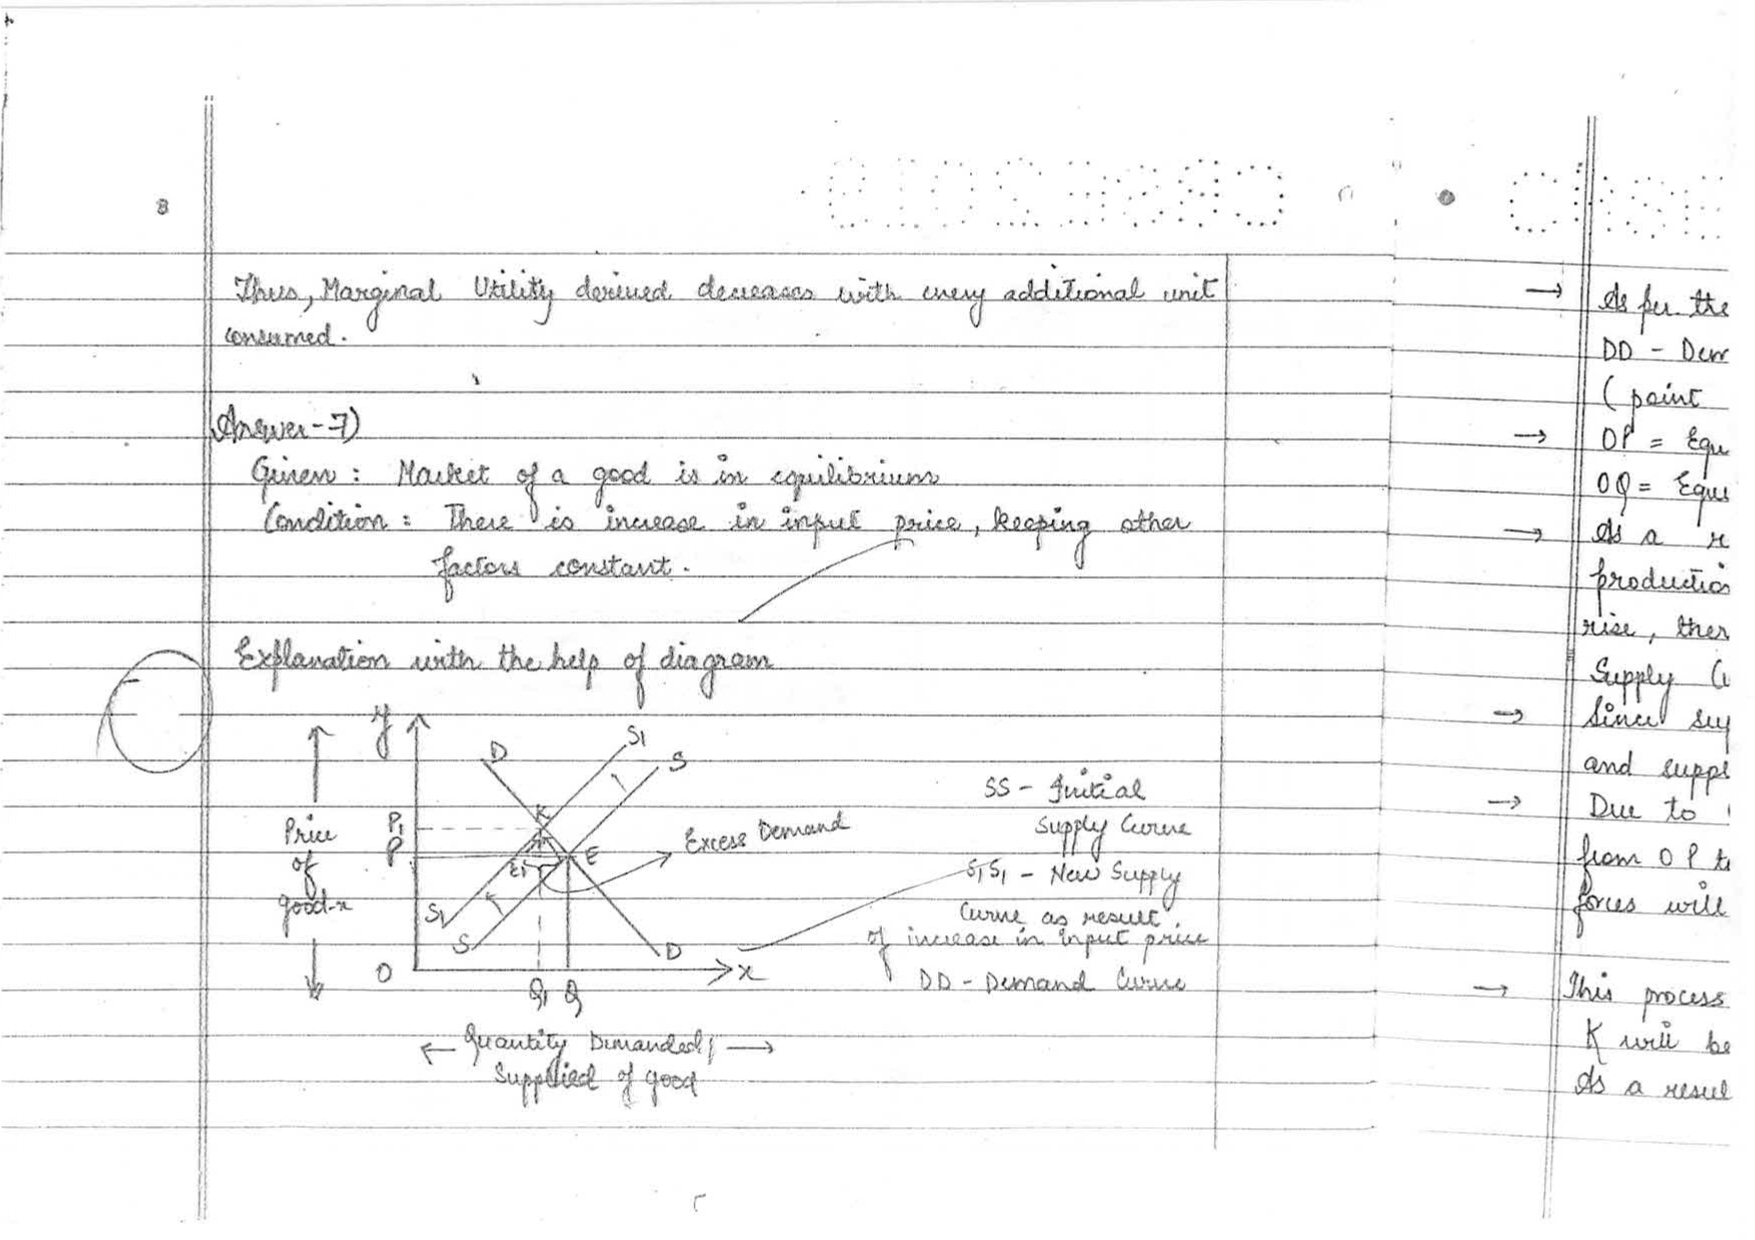 8
Thus, Marginal Utility derived decreases with every additional unit
consumed.
Answer-7)
Given : Market of a good is in equilibrium
Condition : There is increase in input price, keeping other
factors constant.
Explanation with the help of diagram
y
Price
of
good-x
P1
P
O
D
S1
S
K
E
E1
S1
S
D
Q1 Q
x
Excess Demand
SS - Initial
Supply Curve
S1S1 - New Supply
Curve as result
of increase in input price
DD - Demand Curve
← Quantity Demanded/ →
Supplied of good
→ As per the
DD - Dem
( point
→ OP = Equ
OQ = Equi
→ As a r
production
rise, ther
Supply (
→ Since sup
and suppl
→ Due to
from OP t
forces will
→ This process
K will be
As a resul